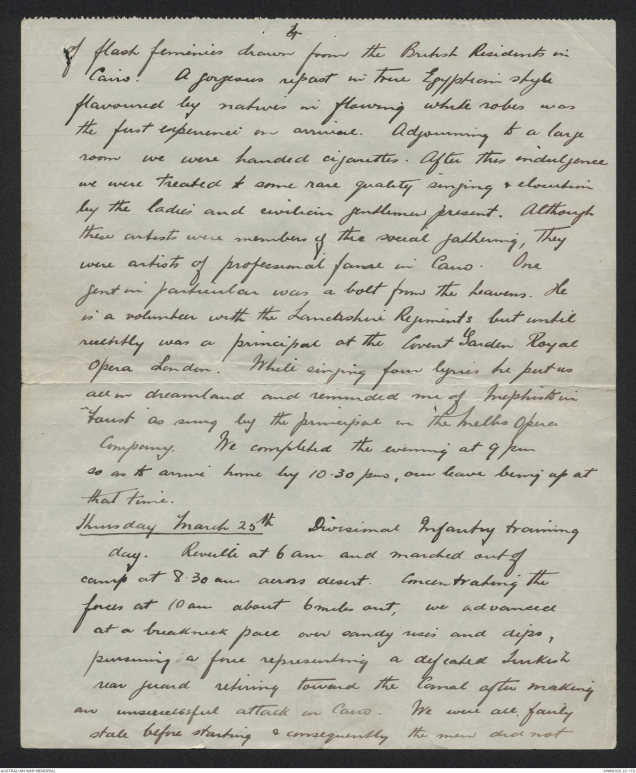 4
of flash feminies drawn from the British Residents in
Cairo. A gorgeous repast in true Egyptian style
flavoured by natives in flowing white robes was
the first experience on arrival. Adjourning to a large
room we were handed cigarettes. After this indulgence
we were treated to some rare quality singing & elocution
by the ladies and civilian gentlemen present. Although
these artists were members of the social gathering, they
were artists of professional fame in Cairo. One
gent in particular was a bolt from the heavens. He
is a volunteer with the Lancashire Regiments but until
recently was a principal at the Covent Garden Royal
Opera London. While singing four lyrics he put us
all in dreamland and reminded me of Mephisto in
"Faust" as sung by the principal in the Melba Opera
Company. We completed the evening at 9 pm
so as to arrive home by 10.30 pm, our leave being up at
that time.
Thursday March 25th Divisional Infantry training
day. Reveille at 6 am and marched out of
camp at 8.30 am across desert. Concentrating the
forces at 10 am about 6 miles out, we advanced
at a breakneck pace over sandy rises and dips,
pursuing a force representing a defeated Turkish
rear guard retiring toward the Canal after making
an unsuccessful attack on Cairo. We were all fairly
stale before starting & consequently the men did not
AUSTRALIAN WAR MEMORIAL